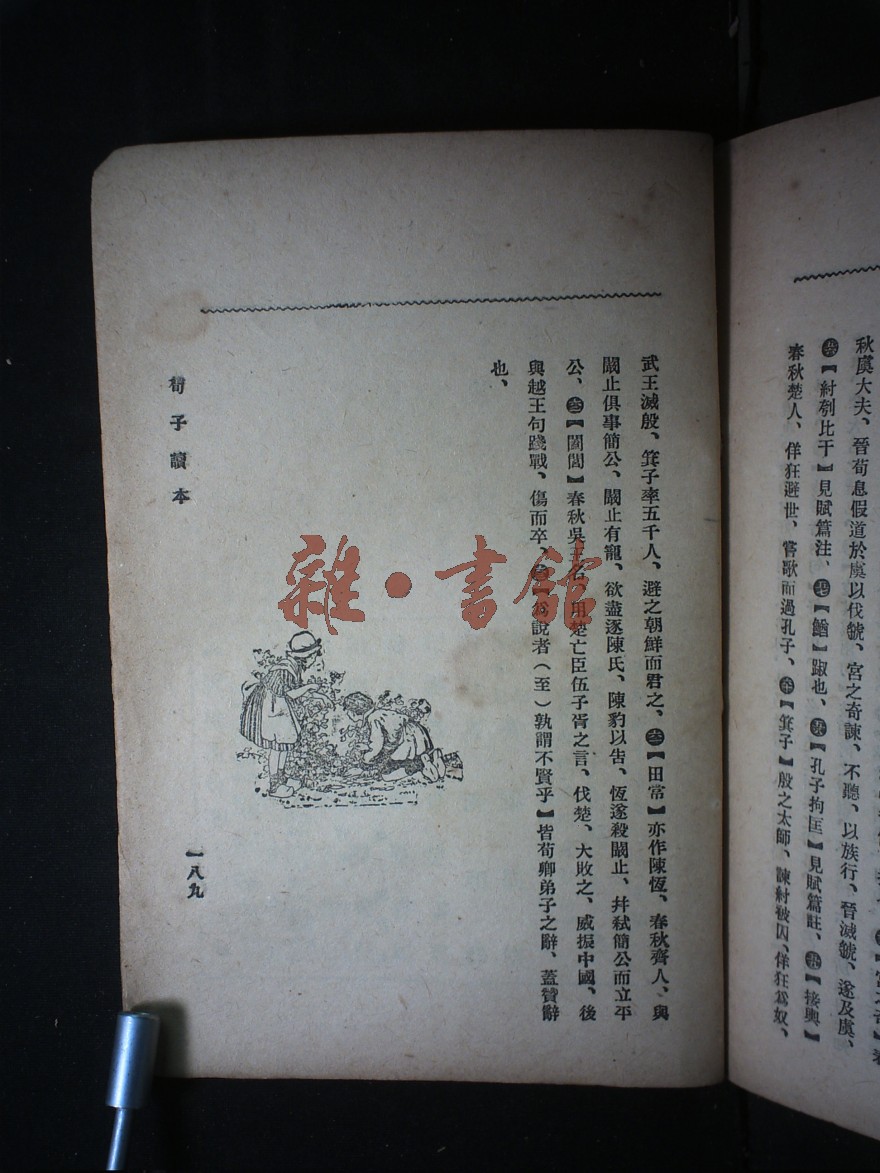 秋虞大夫、晉荀息假道於虞以伐虢、宮之奇諫、不聽、以族行、晉滅虢、遂及虞、
【紂刳比干】見賦篇注、【鰌】踧也、【孔子拘匡】見賦篇註、【接輿】
春秋楚人、佯狂避世、嘗歌而過孔子、【箕子】殷之太師、諫紂被囚、佯狂爲奴、
武王滅殷、箕子率五千人、避之朝鮮而君之、【田常】亦作陳恆、春秋齊人、與
闞止俱事簡公、闞止有寵、欲盡逐陳氏、陳豹以告、恆遂殺闞止、幷弒簡公而立平
公、【闔閭】春秋吳王名、用楚亡臣伍子胥之言、伐楚、大敗之、威振中國、後
與越王句踐戰、傷而卒、【爲說者（至）孰謂不賢乎】皆荀卿弟子之辭、蓋贊辭
也、
荀子讀本
一八九
雜·書館